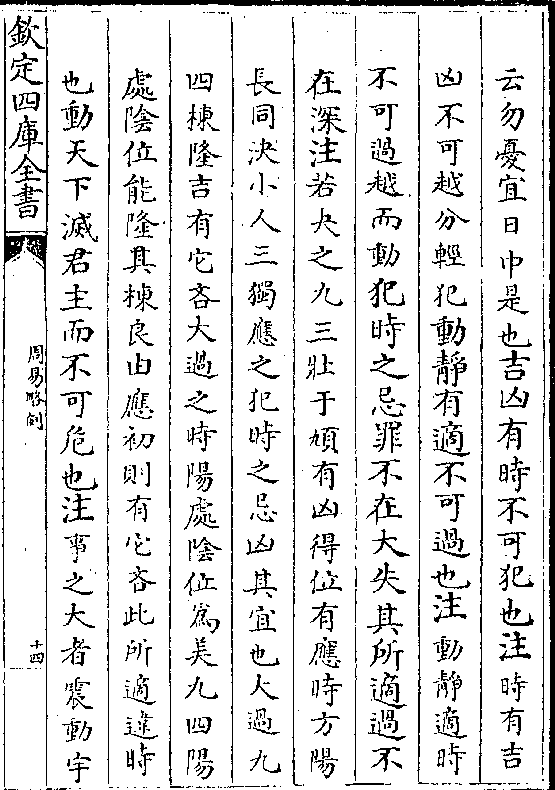 云勿憂宜日中是也吉凶有時不可犯也注時有吉
凶不可越分輕犯動靜有適不可過也注動靜適時
不可過越而動犯時之忌罪不在大失其所適過不
在深注若夬之九三壯于頄有凶得位有應時方陽
長同決小人三獨應之犯時之忌凶其宜也大過九
四棟隆吉有它吝大過之時陽處陰位為美九四陽
處陰位能隆其棟良由應初則有它吝此所適違時
也動天下滅君主而不可危也注事之大者震動宇
欽定四庫全書
周易略例
十四